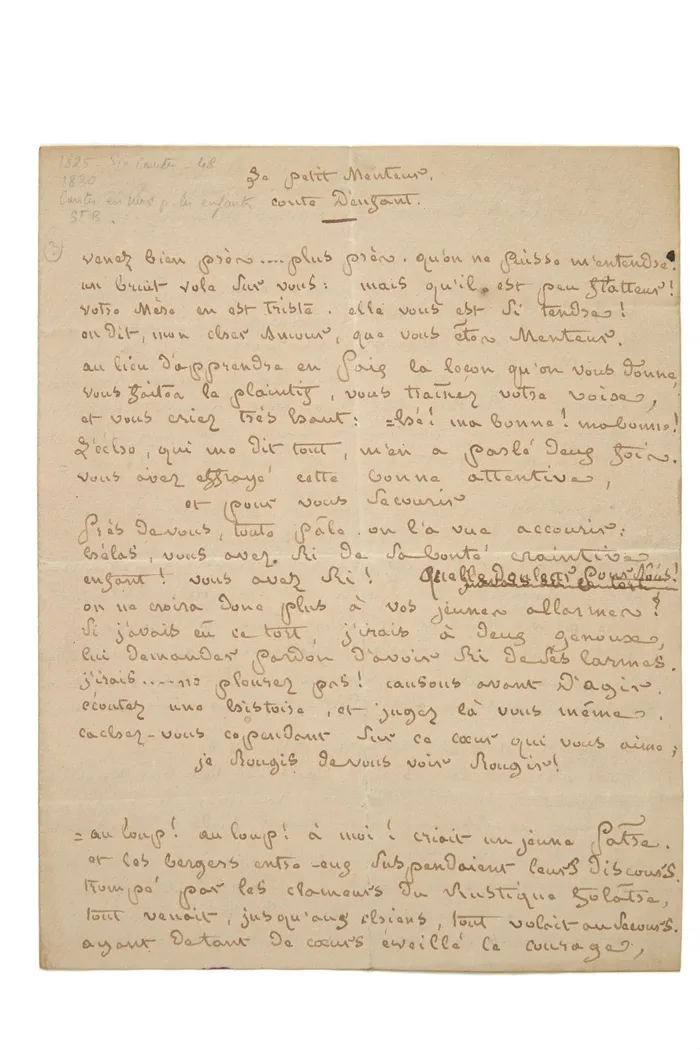 1825
1830
Le petit Menteur.
conte D'enfant.
venez bien près.... plus près. qu'on ne puisse m'entendre!
un bruit vole sur vous: mais qu'il est peu flatteur!
votre Mère en est triste. elle vous est si tendre!
on dit, mon cher Amour, que vous êtes Menteur.
au lieu d'apprendre en paix la leçon qu'on vous donne,
vous faites le plaintif, vous traînez votre voix,
et vous criez très haut: =hé! ma bonne! ma bonne!
L'écho, qui me dit tout, m'en a parlé deux fois.
vous avez effrayé cette bonne attentive,
et pour vous secourir
près de vous, toute pâle on l'a vue accourir:
hélas, vous avez Ri de sa bonté craintive
enfant! vous avez Ri! Quelle Douleur Pour Nous!
on ne croira donc plus à vos jeunes allarmes?
Si j'avais eû ce tort, j'irais à deux genoux,
lui demander pardon d'avoir Ri de ses larmes.
j'irais.... ne pleurez pas! causons avant D'agir.
écoutez une histoire, et jugez là vous même.
cachez-vous cependant sur ce cœur qui vous aime;
je Rougis de vous voir Rougir!
=au loup! au loup! à moi! criait un jeune Pâtre.
et les bergers entre-eux suspendaient leurs discours.
trompé par les clameurs du Rustique folâtre,
tout venait, jusqu'aux chiens, tout volait au secours.
ayant de tant de cœurs éveillé le courage,